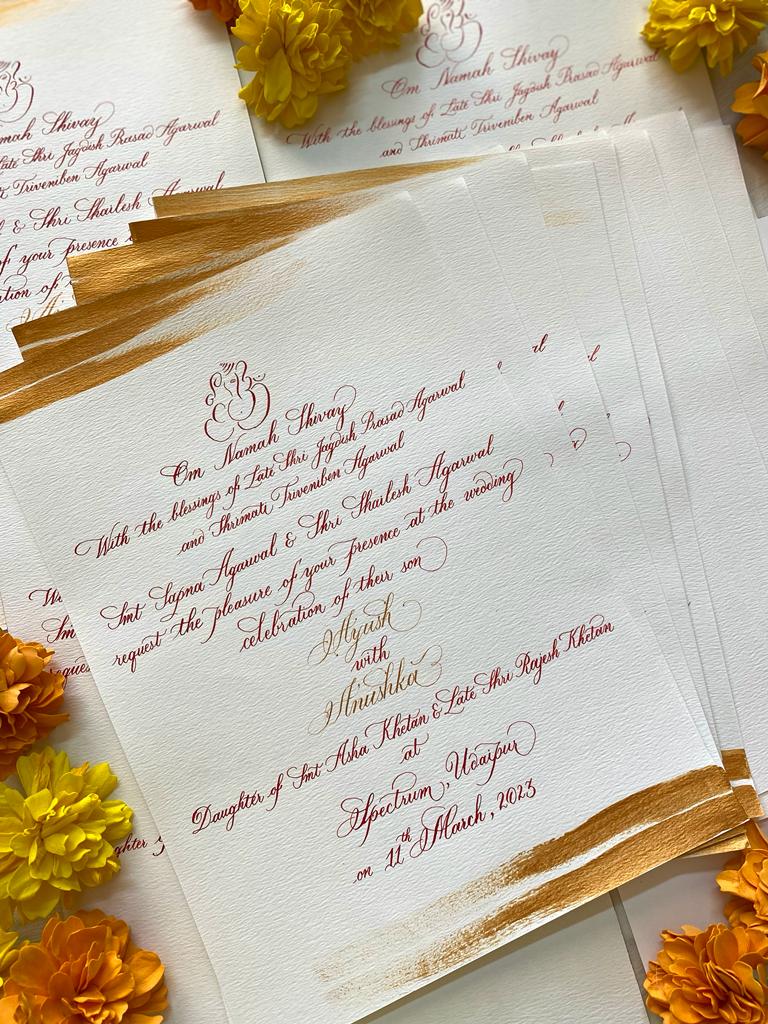 Om Namah Shivay
With the blessings of Late Shri Jagdish Prasad Agarwal
and Shrimati Triveniben Agarwal
Smt Sapna Agarwal & Shri Shailesh Agarwal
request the pleasure of your presence at the wedding
celebration of their son
Ayush
with
Anushka
Daughter of Smt Asha Khetan & Late Shri Rajesh Khetan
at
Spectrum, Udaipur
on 11th March, 2023
Om Namah Shivay
With the blessings of Late Shri Jagdish Prasad Agarwal
and Shrimati Triveniben Agarwal
mah Shivay
Late Shri Jagdish Prasad Agarwal
Triveniben Agarwal
& Shri Shailesh Agarwal
of your presence